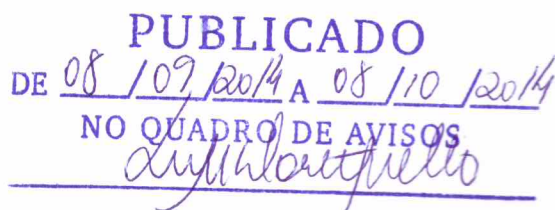 PUBLICADO
DE 08 / 09 / 2014 A 08 / 10 / 2014
NO QUADRO DE AVISOS